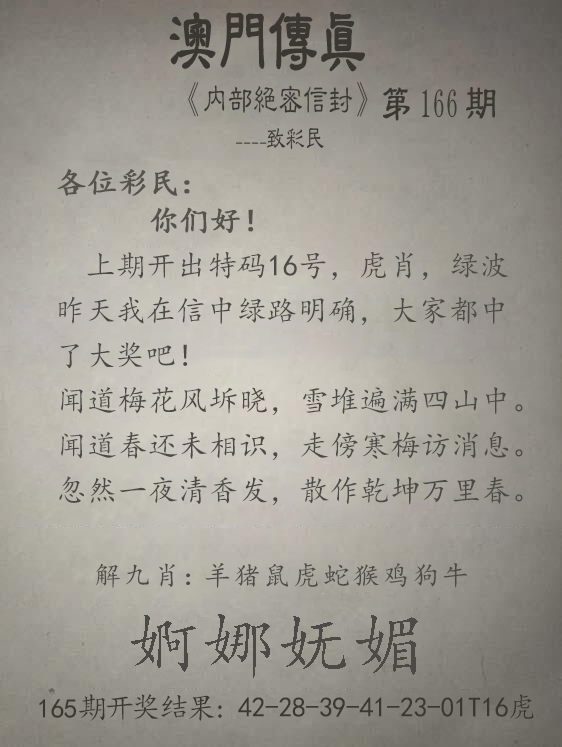 澳門傳真
《内部絕密信封》第166期
----致彩民
各位彩民：
你们好！
上期开出特码16号，虎肖，绿波
昨天我在信中绿路明确，大家都中
了大奖吧！
闻道梅花风坼晓，雪堆遍满四山中。
闻道春还未相识，走傍寒梅访消息。
忽然一夜清香发，散作乾坤万里春。
解九肖：羊猪鼠虎蛇猴鸡狗牛
婀娜妩媚
165期开奖结果：42-28-39-41-23-01T16虎